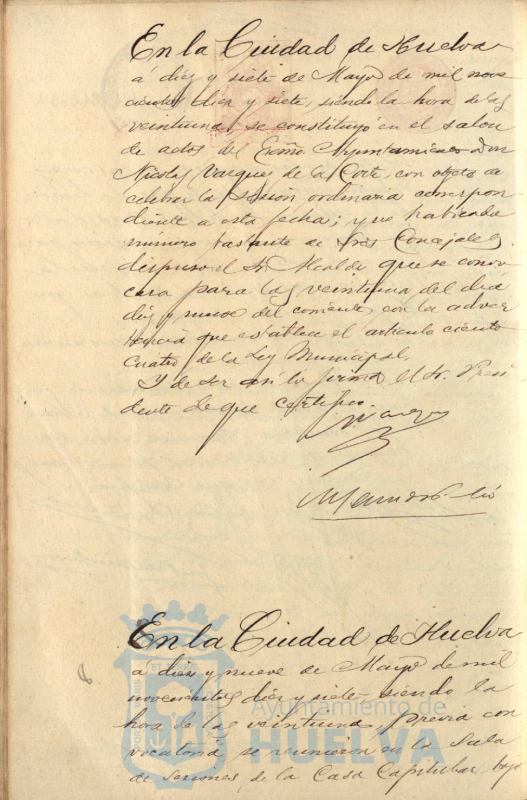 En la Ciudad de Huelva
a diez y siete de Mayo de mil nove
cientos diez y siete, siendo la hora de las
veintiuna, se constituyó en el salon
de actos del Excmo Ayuntamiento Don
Nicolas Vazquez de la Corte, con objeto de
celebrar la sesion ordinaria correspon
diente a esta fecha; y no habiendo
numero bastante de Sres Concejales,
dispuso el Sr. Alcalde que se convo
cara para las veintiuna del dia
diez y nueve del corriente, con la adver
tencia que establece el articulo ciento
cuatro de la Ley Municipal.
Y de ser asi lo firma el Sr. Presi
dente de que certifico.
En la Ciudad de Huelva
a diez y nueve de Mayo de mil
novecientos diez y siete siendo la
hora de las veintiuna, previa con
vocatoria se reunieron en la Sala
de Sesiones de la Casa Capitular bajo
Ayuntamiento de
HUELVA